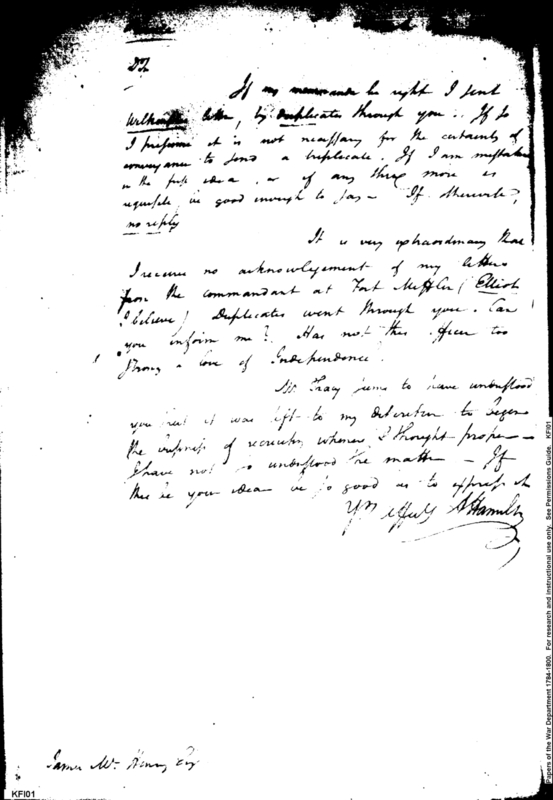 Dr S.
If my memoranda be right I sent
Wilkinsons letter, by duplicates through you. If so
I presume it is not necessary for the certainty of
conveyance to send a triplicate. If I am mistaken
in the first idea, or if any thing more is
requisite, be good enough to say— If otherwise,
no reply
It is very extraordinary that
I receive no acknowlegement of my letters
from the commandant at Fort Mifflin (Elliot
I believe) Duplicates went through you. Can
you inform me? Has not this officer too
strong a love of Independence.
Mr. Tracy seems to have understood
you that it was left to my discretion to begin
the business of recruiting whenever I thought proper—
I have not so understood the matter— If
this be your idea be so good as to express it
Yrs Affecly A Hamilton
James Mc.Henry Esq
KFI01
Papers of the War Department 1784-1800. For research and instructional use only. See Permissions Guide. KFI01